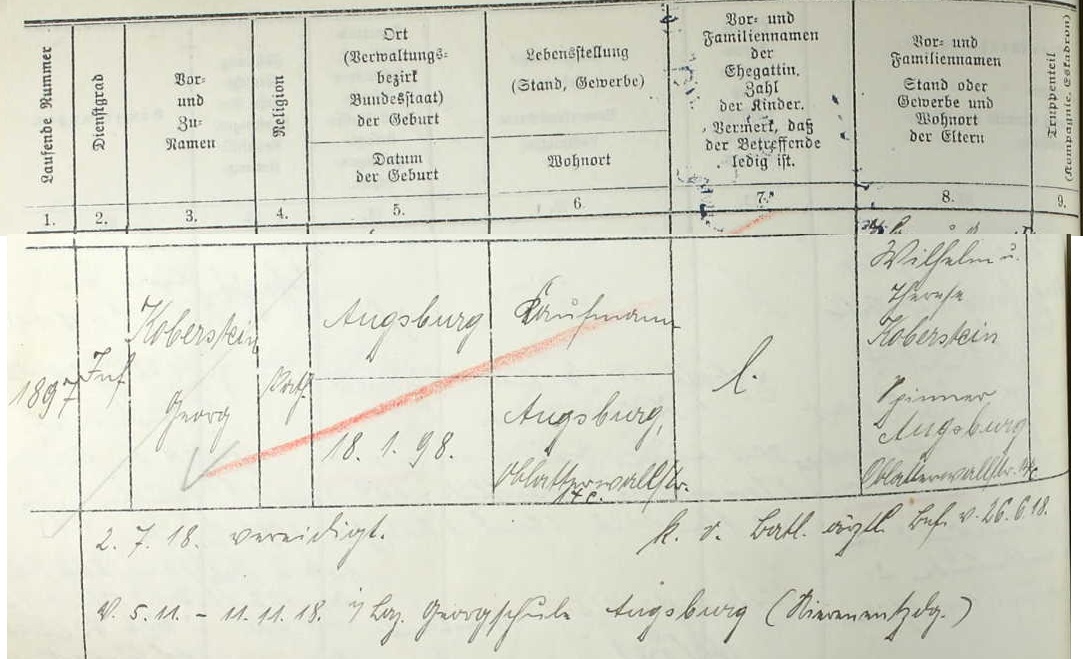 Laufende Nummer
Dienstgrad
Vor-
und
Zu-
Namen
Religion
Ort
(Verwaltungs-
bezirk
Bundesstaat)
der Geburt
Datum
der Geburt
Lebensstellung
(Stand, Gewerbe)
Wohnort
Vor- und
Familiennamen
der
Ehegattin.
Zahl
der Kinder.
Vermerk, daß
der Betreffende
ledig ist.
Vor- und
Familiennamen
Stand oder
Gewerbe und
Wohnort
der Eltern
Truppenteil
(Kompagnie, Eskadron)
1. 2. 3. 4. 5. 6. 7. 8. 9.
1897
Inf.
Koberstein
Georg
kath.
Augsburg
18. 1. 98.
Kaufmann
Augsburg,
Oblatterwallstr.
14c.
l.
Wilhelm u.
Therese
Koberstein
Spinner
Augsburg
Oblatterwallstr. 14c
2. 7. 18. vereidigt.
k. v. Batl. ärztl. Bef. v. 26.6.18.
V. 5. 11. – 11. 11. 18. i/ Laz. Georgschule Augsburg (Nierenentzdg.)